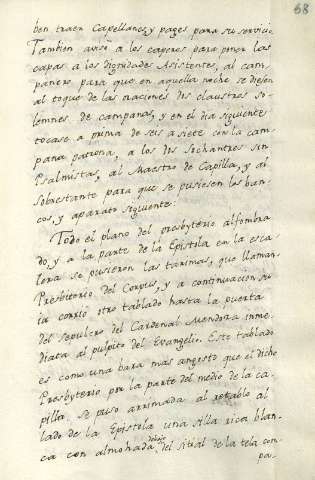 68
ben traen Capellanes, y pages para su servicio.
Tambien avisó a los caperos para poner las
capas a los dignidades Asistentes, al cam-
panero para que en aquella noche se diesen
al toque de las oraciones dos claustros so-
lemnes de campanas, y en el dia siguiente
tocase a prima de seis a siete con la cam-
pana patrona, a los dos Sochantres sin
Psalmistas, al Maestro de Capilla, y al
sobrestante para que se pusiesen los ban-
cos, y aparato siguiente:
Todo el plano del presbyterio alfombra
do, y a la parte de la Epistola en la esca-
lera se pusieron las tarimas, que llaman
Presbiterio del Corpus, y a continuacion su
ia corrió otro tablado hasta la puerta
del sepulcro del Cardenal Mendoza inme
diata al pulpito del Evangelio. Este tablado
es como una bara mas angosto que el dicho
Presbyterio por la parte del medio de la ca-
pilla. Se puso arrimada al retablo al
lado de la Epistola una silla rica blan-
ca con almohada debajo del sitial de la tela com-
pa-